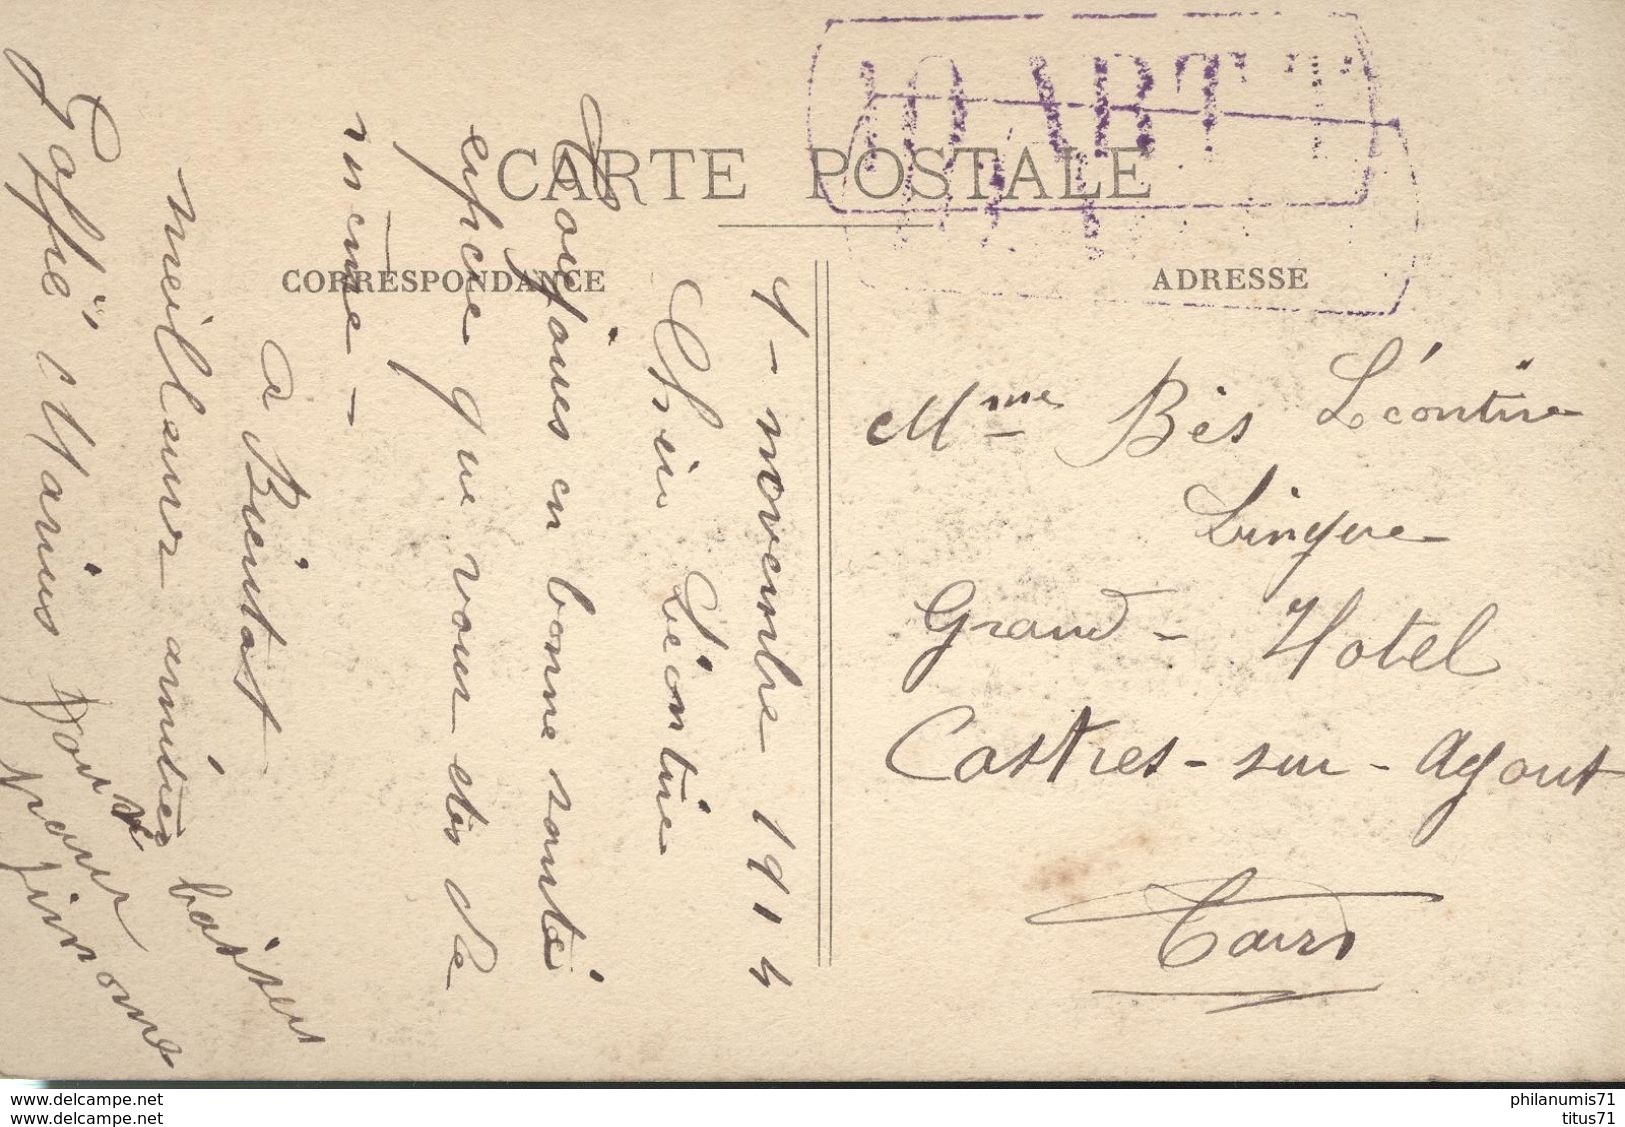 CARTE POSTALE
CORRESPONDANCE
ADRESSE
4 - novembre 1914
Chère Léontine
Toujours en bonne santé
espère que vous etes de
meme -
a Bientot
meilleur amitiés baisers
Gaffié Marius
pour
Mme Bès Léontine
Lingère
Grand - Hotel
Castres - sur - Agout
Tarn
philanumis71
philanumis71
titus71
titus71